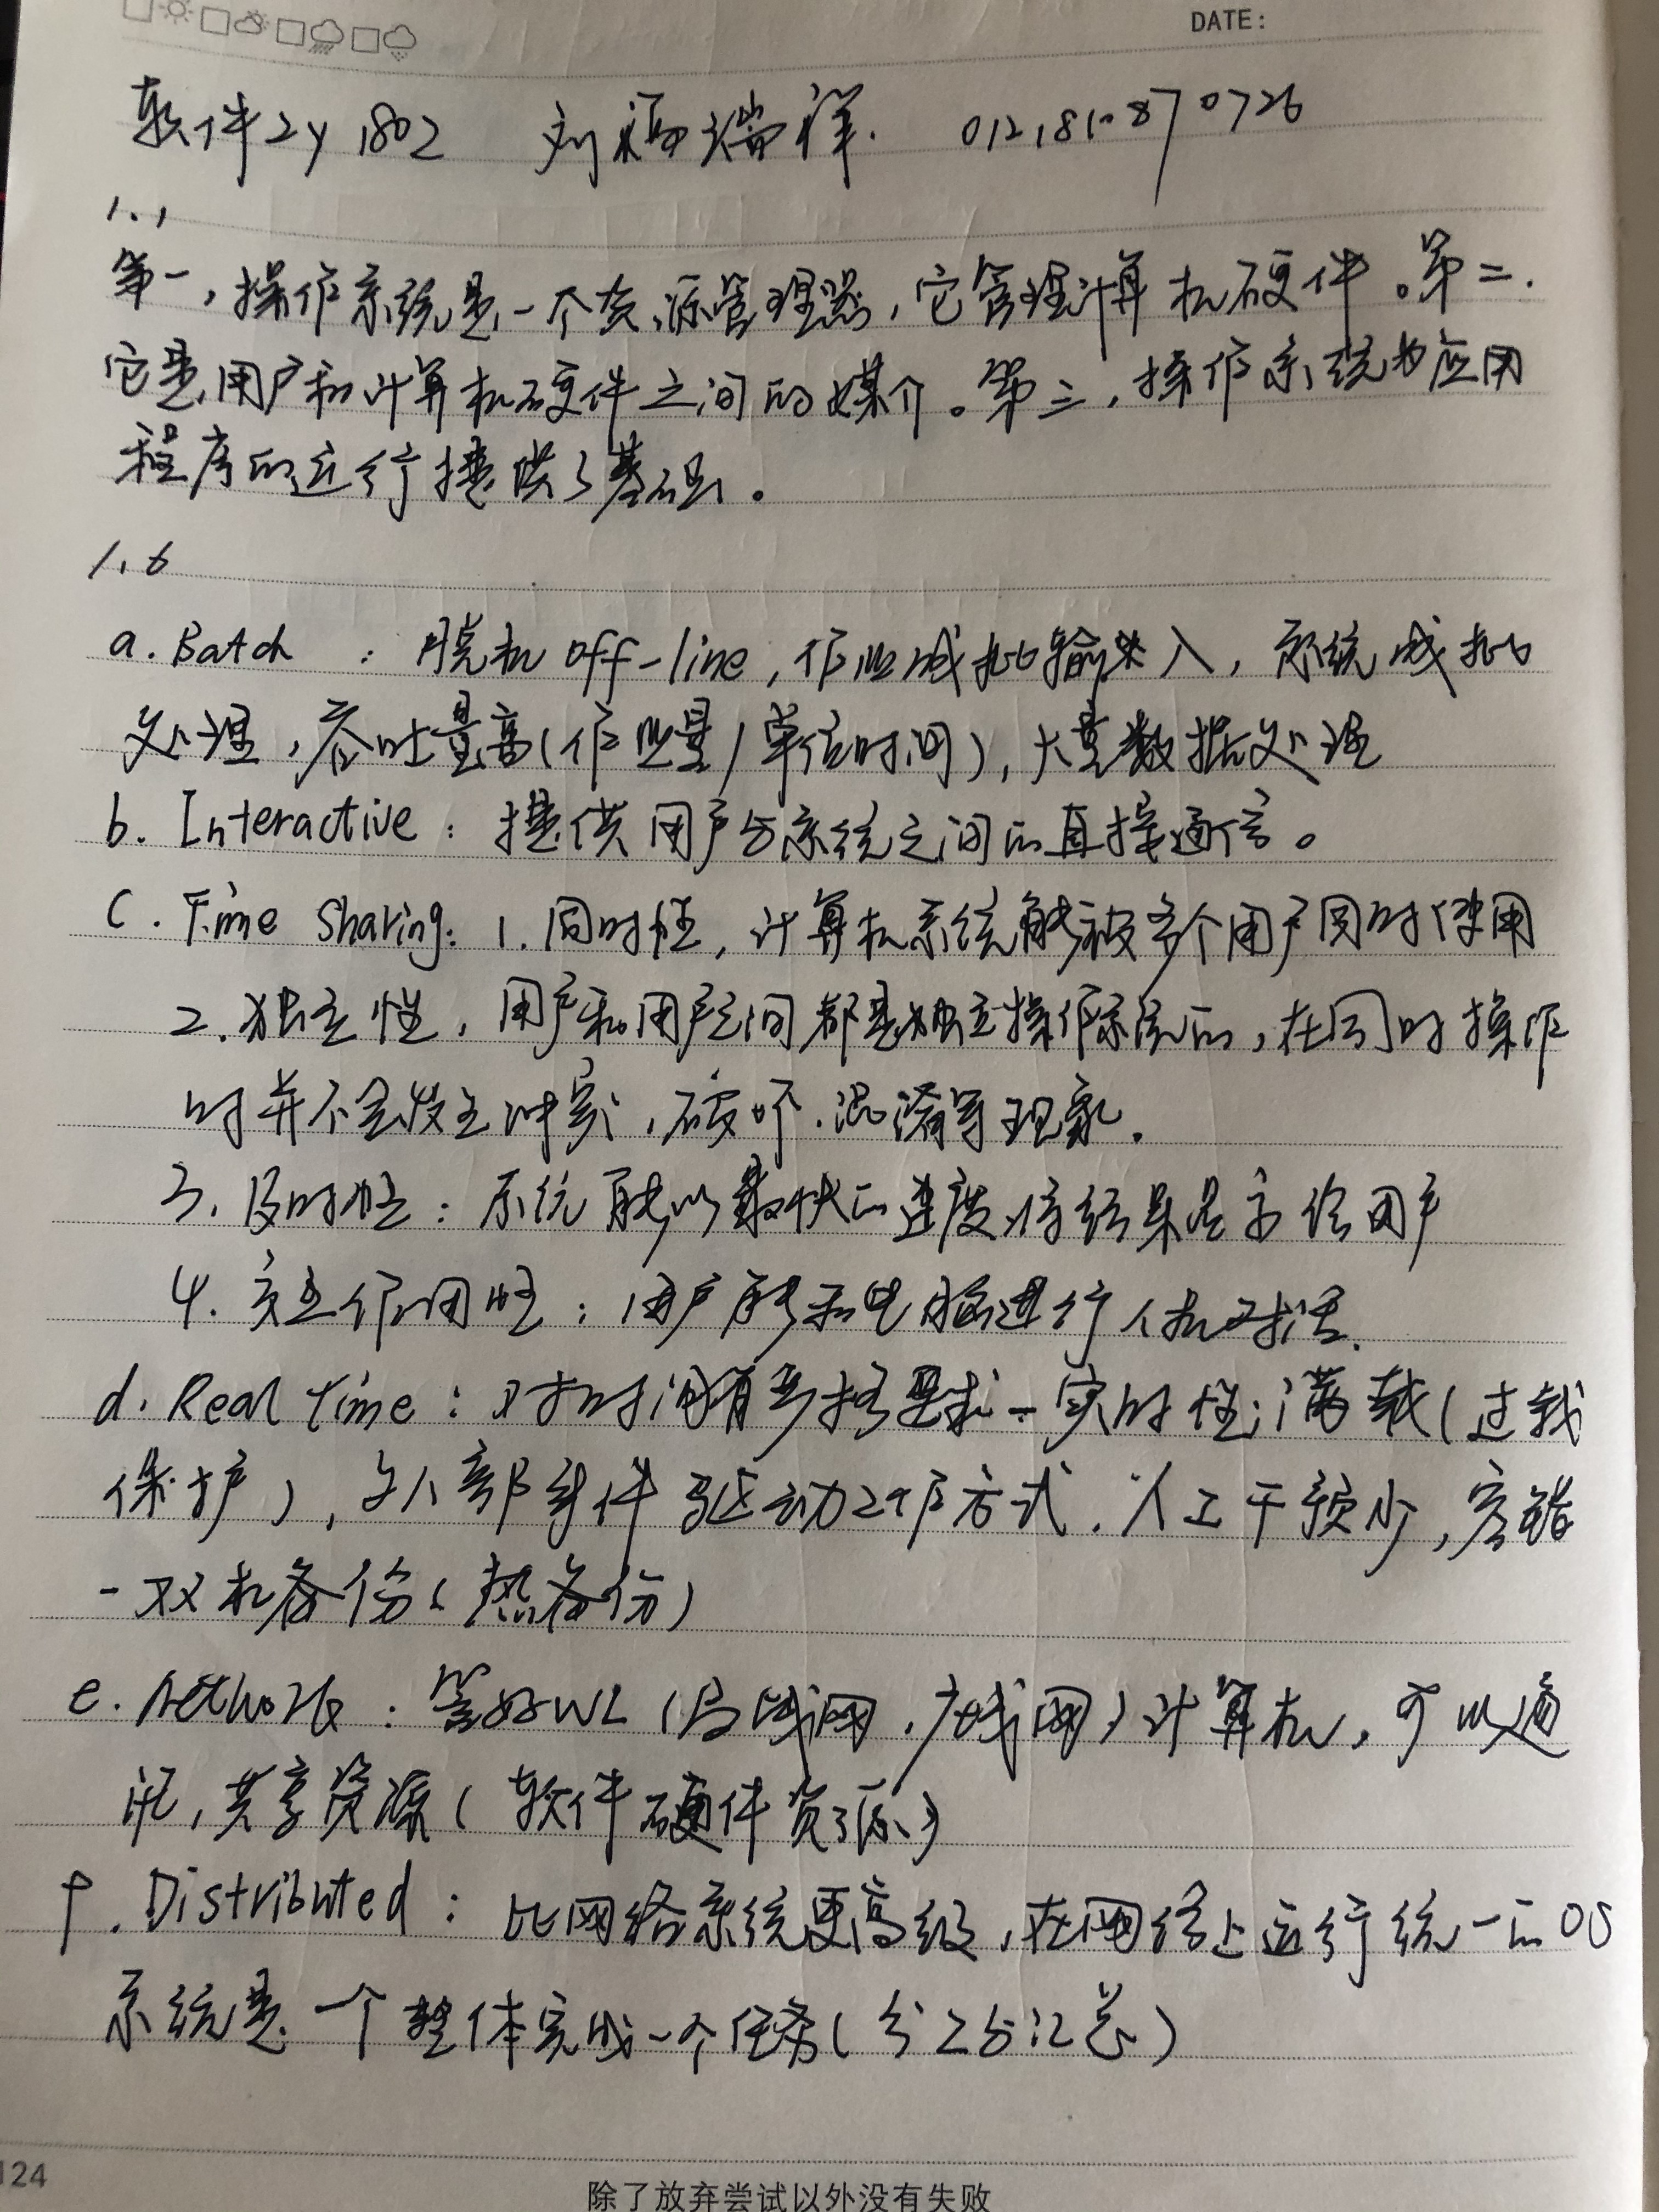 DATE:
软件zy1802 刘福瑞祥. 0121810870726
1.1
第一，操作系统是一个资源管理器，它管理计算机硬件。第二.
它是用户和计算机硬件之间的媒介。第三，操作系统为应用
程序的运行提供了基础。
1.6
a. Batch : 脱机 off-line, 作业成批输入，系统成批
处理，吞吐量高(作业量/单位时间)，大量数据处理
b. Interactive : 提供用户与系统之间的直接通信。
C. Time Sharing: 1. 同时性，计算机系统能被多个用户同时使用
2. 独立性，用户和用户之间都是独立操作系统的，在同时操作
时并不会发生冲突，破坏.混淆等现象.
3. 及时性：系统能以最快的速度将结果显示给用户
4. 交互作用性：用户能和电脑进行人机对话.
d. Real time : 对时间有严格要求-实时性；满载(过载
保护)，外部事件驱动工作方式.人工干预少，容错
-双机备份(热备份)
e. Network : 签好WL(局域网，广域网)计算机，可以通
讯，共享资源(软件硬件资源)
f. Distributed : 比网络系统更高级，在网络上运行统一的OS
系统是一个整体完成一个任务(分工与汇总)
124
除了放弃尝试以外没有失败